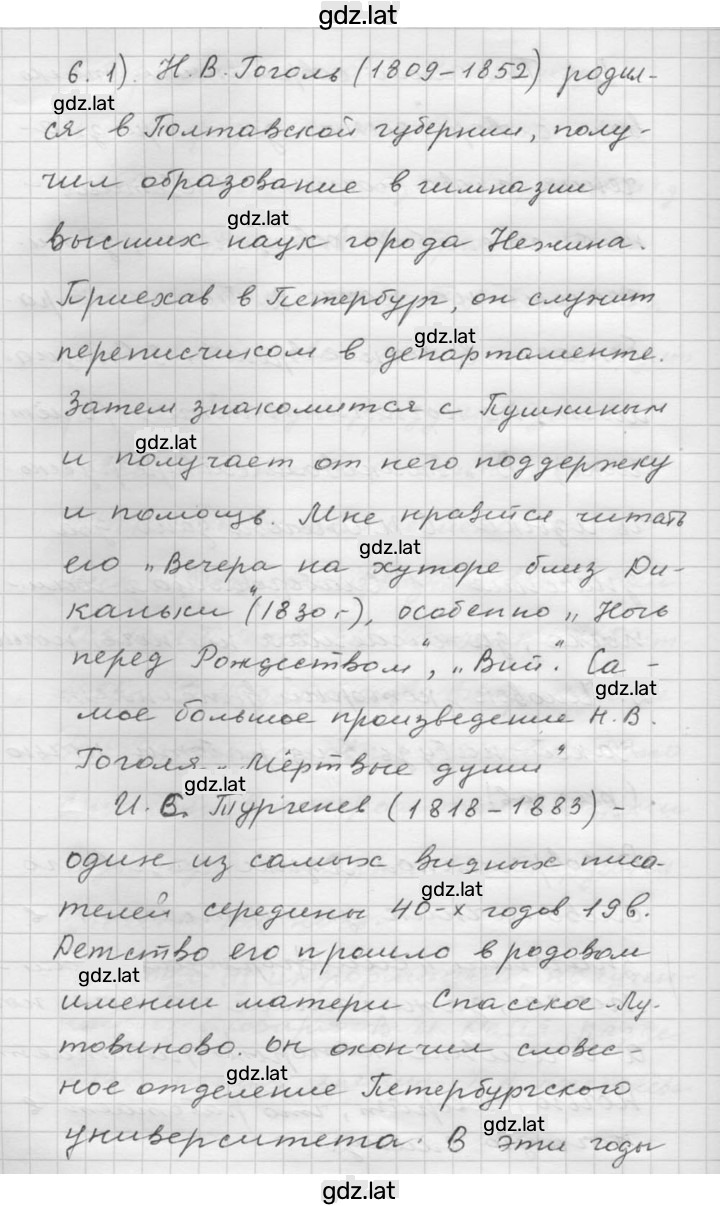 gdz.lat
6. 1). Н. В. Гоголь (1809-1852) родил-
gdz.lat
ся в Полтавской губернии, полу-
чил образование в гимназии
gdz.lat
высших наук города Нежина.
Приехав в Петербург, он служит
gdz.lat
переписчиком в департаменте.
Затем знакомится с Пушкиным
gdz.lat
и получает от него поддержку
и помощь. Мне нравится читать
gdz.lat
его „Вечера на хуторе близ Ди-
каньки“ (1830 г.), особенно „Ночь
перед Рождеством“, „Вий“. Са-
gdz.lat
мое большое произведение Н. В.
Гоголя „Мёртвые души“
gdz.lat
И. С. Тургенев (1818-1883) -
один из самых видных писа-
gdz.lat
телей середины 40-х годов 19 в.
Детство его прошло в родовом
gdz.lat
имении матери Спасское-Лу-
товиново. Он окончил словес-
gdz.lat
ное отделение Петербургского
gdz.lat
университета. В эти годы
gdz.lat